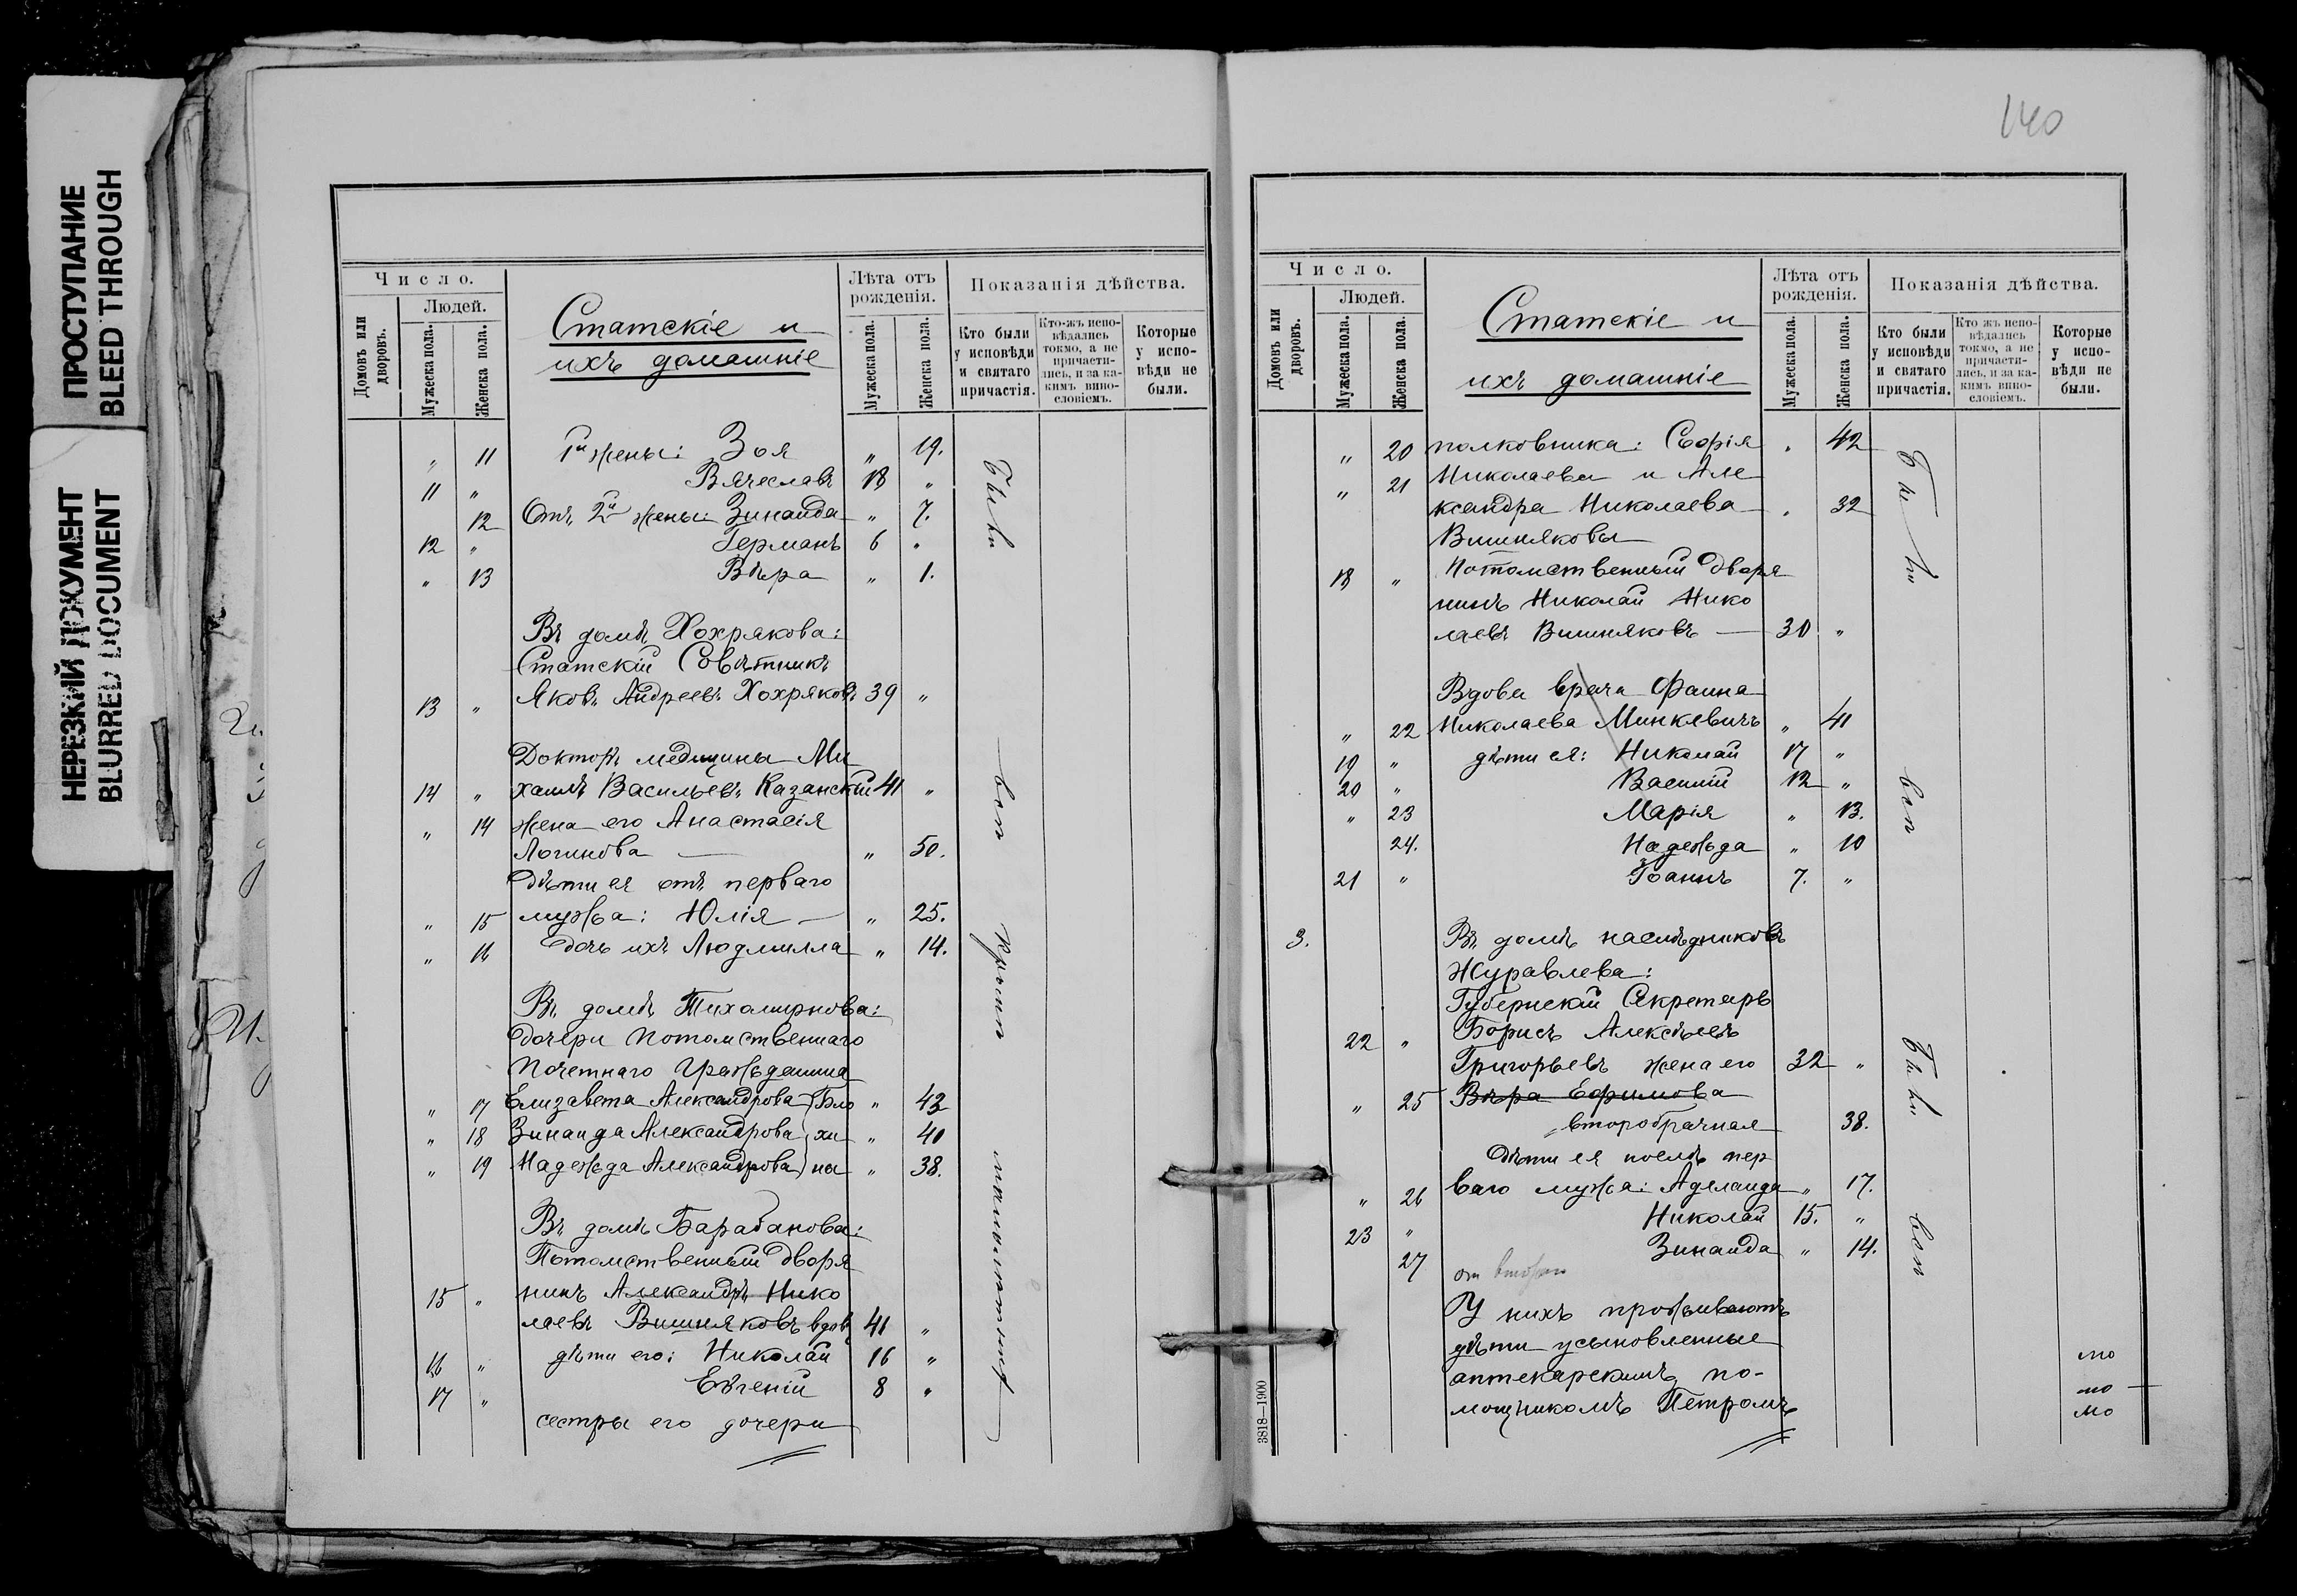 ПРОСТУПАНИЕ
BLEED THROUGH
НЕРЕЗКИЙ ДОКУМЕНТ
BLURRED DOCUMENT
Число.
Людей.
Домовъ или дворовъ.
Мужеска пола.
Женска пола.
Статскіе и
ихъ домашніе
Лѣта отъ рожденія.
Мужеска пола.
Женска пола.
Показанія дѣйства.
Кто были у исповѣди и святаго причастія.
Кто-жъ исповѣдались токмо, а не причастились, и за какимъ винословіемъ.
Которые у исповѣди не были.
„ 11 1й жены: Зоя „ 19.
11 „ Вячеславъ 18 „
12 Отъ 2й жены: Зинаида „ 7.
12 „ Германъ 6 „
„ 13 Вѣра „ 1.
Въ домѣ Хохрякова:
Статскій Совѣтникъ
13 „ Яковъ Андреевъ Хохряковъ 39 „
Докторъ медицины Ми
14 „ хаилъ Васильевъ Казанскій 41 „
„ 14 жена его Анастасія
Логинова — „ 50.
Дѣти ея отъ перваго
„ 15 мужа: Юлія — „ 25.
„ 16 дочь ихъ Людмилла „ 14.
Въ домѣ Тихомирнова:
Дочери Потомственнаго
Почетнаго Гражданина
„ 17 Елизавета Александрова) Бло „ 43
„ 18 Зинаида Александрова) хи „ 40
„ 19 Надежда Александрова) на „ 38.
Въ домѣ Барабанова:
Потомственный дворя
15 „ нинъ Александръ Нико
лаевъ Вишняковъ вдовъ 41 „
16 „ дѣти его: Николай 16 „
17 „ Евгеній 8 „
сестры его дочери
Были
вси
140
Число.
Людей.
Домовъ или дворовъ.
Мужеска пола.
Женска пола.
Статскіе и
ихъ домашніе
Лѣта отъ рожденія.
Мужеска пола.
Женска пола.
Показанія дѣйства.
Кто были у исповѣди и святаго причастія.
Кто жъ исповѣдались токмо, а не причастились, и за какимъ винословіемъ.
Которые у исповѣди не были.
„ 20 полковника: Софія „ 42
„ 21 Николаева и Але
ксандра Николаева „ 32
Вишняковы
18 „ Потомственный дворя
нинъ Николай Нико
лаевъ Вишняковъ — 30 „
Вдова врача Фаина
„ 22 Николаева Минкевичъ „ 41
19 „ дѣти ея: Николай 17 „
20 „ Василій 12 „
„ 23 Марія „ 13.
24. Надежда „ 10
21 „ Іоаннъ 7. „
3. Въ домѣ наслѣдниковъ
Журавлева:
Губернскій Секретарь
22 „ Борисъ Алексѣевъ
Григорьевъ жена его 32 „
„ 25 Вѣра Ефимова
второбрачная 38.
Дѣти ея послѣ пер
„ 26 ваго мужа: Аделаида „ 17.
23 „ Николай 15. „
27 Зинаида „ 14.
У нихъ проживаютъ
дѣти усыновленные
аптекарскимъ по-
мощникомъ Петромъ
Были
вси
Были
вси
3818—1900